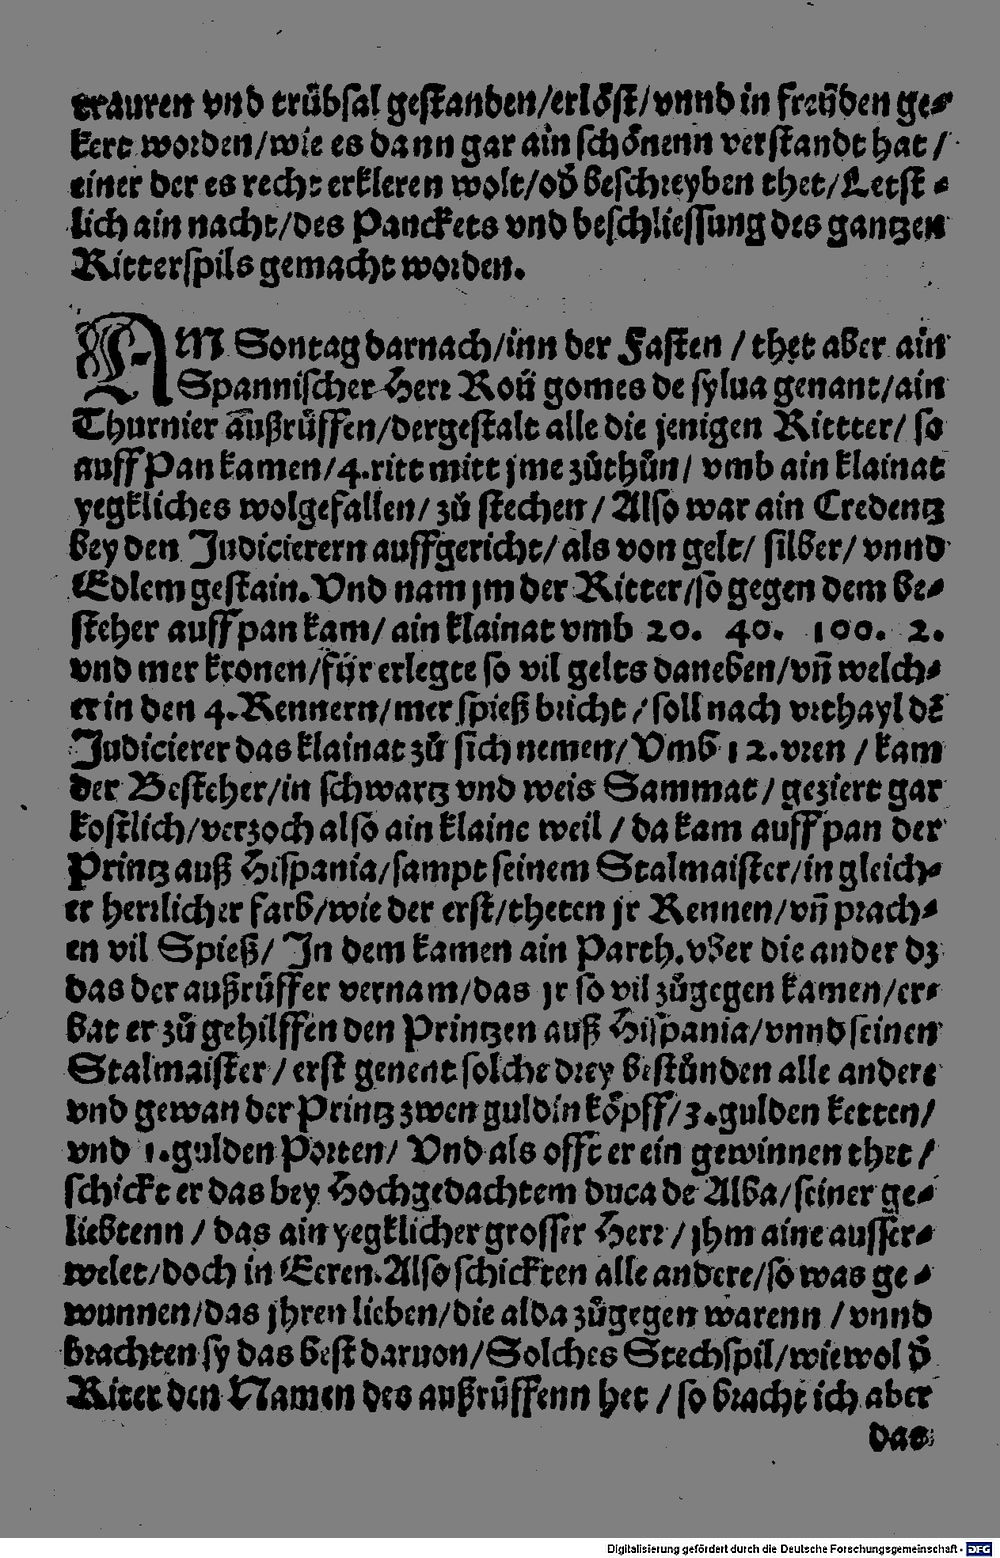 trauren vnd trübsal gestanden/erlöst/vnnd in freüden ge⸗
kert worden/wie es dann gar ain schönenn verstandt hat /
einer der es recht erkleren wolt/od̕ beschreyben thet/Letst ⸗
lich ain nacht/des Panckets vnd beschliessung des gantzen
Ritterspils gemacht worden.
AM Sontag darnach/inn der Fasten / thet aber ain
Spannischer Herr Roü gomes de sylua genant/ain
Thurnier außrüffen/dergestalt alle die jenigen Rittter/ so
auff Pan kamen/4.ritt mitt jme zůthůn/ vmb ain klainat
yegkliches wolgefallen/ zů stechen / Also war ain Credentz
bey den Judicierern auffgericht/ als von gelt/ silber/ vnnd
Edlem gestain. Vnd nam jm der Ritter/so gegen dem be⸗
steher auff pan kam/ ain klainat vmb 20. 40. 100. 2.
vnd mer kronen/für erlegte so vil gelts daneben/vñ welch⸗
er in den 4.Rennern/mer spieß bricht / soll nach vrthayl dẽ
Judicierer das klainat zů sich nemen/ Vmb 12.vren / kam
der Besteher/in schwartz vnd weis Sammat / geziert gar
kostlich/verzoch also ain klaine weil / da kam auff pan der
Printz auß Hispania/sampt seinem Stalmaister/in gleich⸗
er herrlicher farb/wie der erst/theten jr Rennen/vñ prach⸗
en vil Spieß/ In dem kamen ain Parth.vber die ander dz
das der außrüffer vernam/das jr so vil zůgegen kamen/er⸗
bat er zů gehilffen den Printzen auß Hispania/vnnd seinen
Stalmaister / erst genent solche drey bestůnden alle andere
vnd gewan der Printz zwen guldin köpff/3.gulden ketten/
vnd 1.gulden Porten/ Vnd als offt er ein gewinnen thet /
schickt er das bey Hochgedachtem duca de Alba/seiner ge⸗
liebtenn / das ain yegklicher grosser Herr / jhm aine ausser⸗
welet/doch in Eeren.Also schickten alle andere/so was ge ⸗
wunnen/das jhren lieben/die alda zůgegen warenn / vnnd
brachten sy das best daruon/Solches Stechspil/wiewol d̕
Riter den Namen des außrüffenn het / so bracht ich aber
das
Digitalisierung gefördert durch die Deutsche Forschungsgemeinschaft - DFG